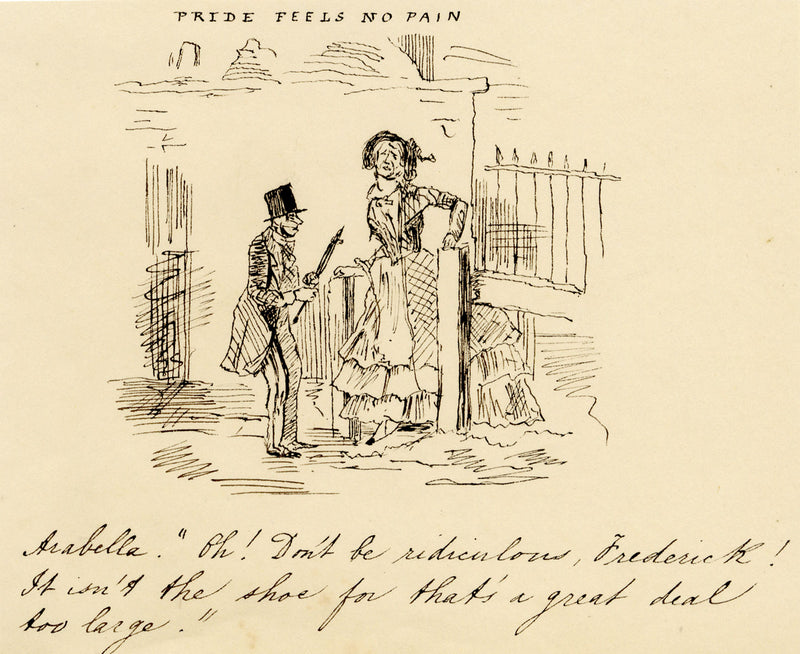 PRIDE FEELS NO PAIN
Arabella. "Oh! Don't be ridiculous, Frederick!
It isn't the shoe for that's a great deal
too large."